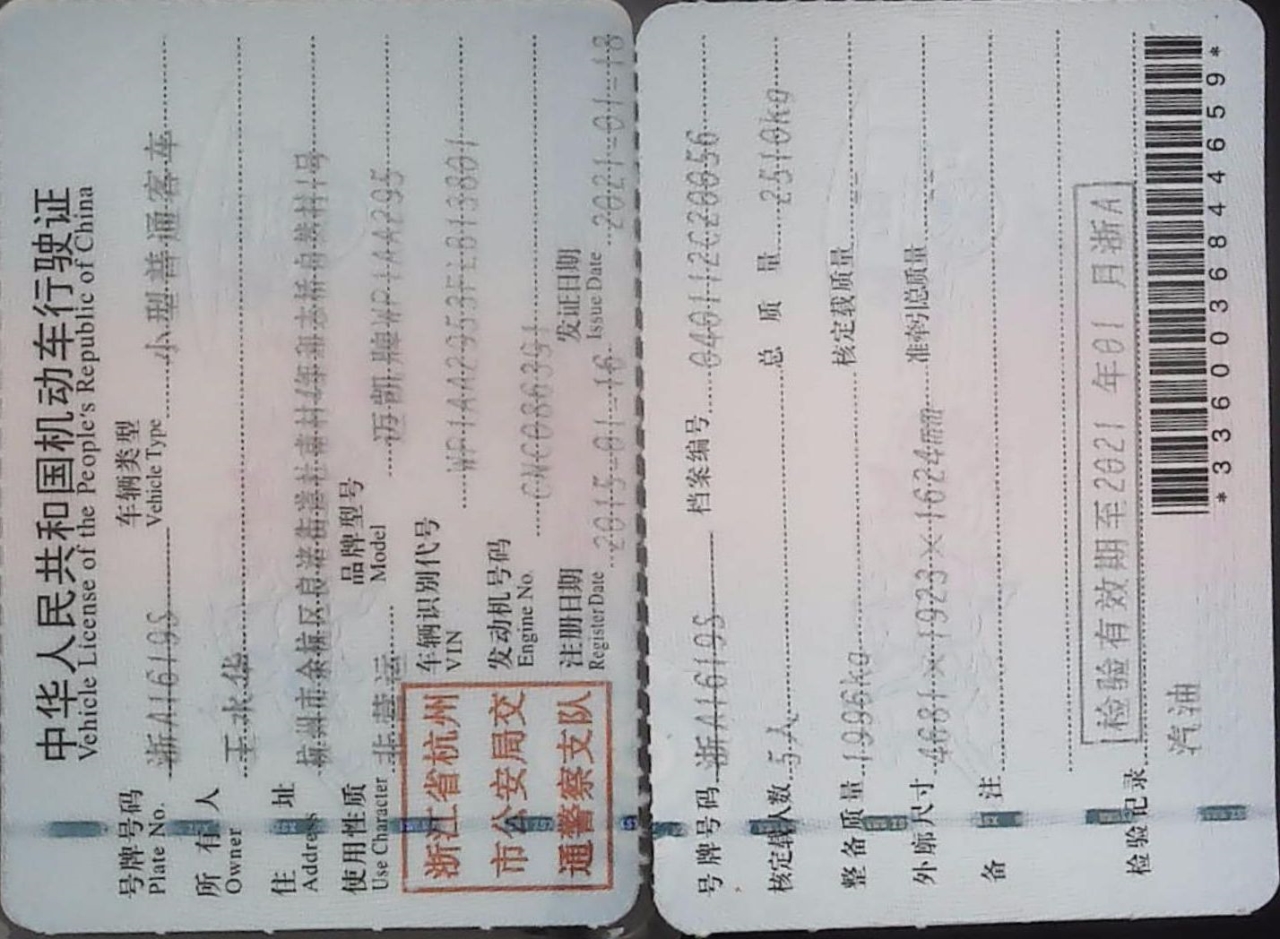 中华人民共和国机动车行驶证
Vehicle License of the People's Republic of China
号牌号码 Plate No. 浙A1619S 车辆类型 Vehicle Type 小型普通客车
所有人 Owner 王水华
住址 Address 杭州市余杭区良渚街道杜甫村
使用性质 Use Character 非营运 品牌型号 Model 迈凯牌WP1AA295
浙江省杭州
市公安局交
通警察支队
车辆识别代号 VIN WP1AA2953FLB13801
发动机号码 Engine No. CNC086391
注册日期 Register Date 2015-01-16 发证日期 Issue Date 2021-01-18
号牌号码 浙A1619S 档案编号 040112C20056
核定载人数 5人 总质量 2510kg
整备质量 1996kg 核定载质量 --
外廓尺寸 4681×1923×1624mm 准牵引总质量 --
备注
检验记录 检验有效期至2021年01月浙A
汽油
*3360036844659*